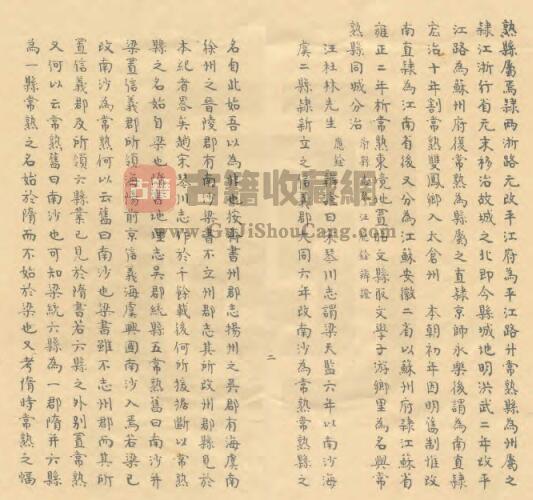 熟縣屬焉隸兩浙路元改平江府為平江路升常熟縣為州屬之
隸江浙行省元末移治故城之北即今縣城地明洪武二年改平
江路為蘇州府復常熟為縣屬之直隸京師永樂後謂為南直隸
宏治十年割常熟雙鳳鄉入太倉州 本朝初年因明舊制惟改
南直隸為江南省後又分為江蘇安徽二省以蘇州府隸江蘇省
雍正二年析常熟東境地置昭文縣取文學子游鄉里為名與常
熟縣同城分治
汪杜林先生 應銓 辯證曰宋琴川志謂梁天監六年以南沙海
虞二縣隸新立之信義郡大同六年改南沙為常熟縣常熟之
二
名自此始吾以為非也按齊書州郡志揚州之吳郡有海虞南
徐州之晉陵郡有南沙梁書不立州郡志其所改州郡縣見於
本紀者畧矣趙宋琴川志作於千餘載後何所援據斷以常熟
縣之名始自梁也隋書地理志吳郡統縣五常熟舊曰南沙并
梁置信義郡所領海陽前京信義海虞興國南沙入焉若梁已
改南沙為常熟何以云舊曰南沙也梁書雖不志州郡而其所
置信義郡及所領六縣業已見於隋書若六縣之外別置常熟
又何以云常熟舊曰南沙也可知梁統六縣為一郡隋并六縣
為一縣常熟之名始於隋而不始於梁也又考隋時常熟之幅
古籍收藏網
www.GuJiShouCang.com